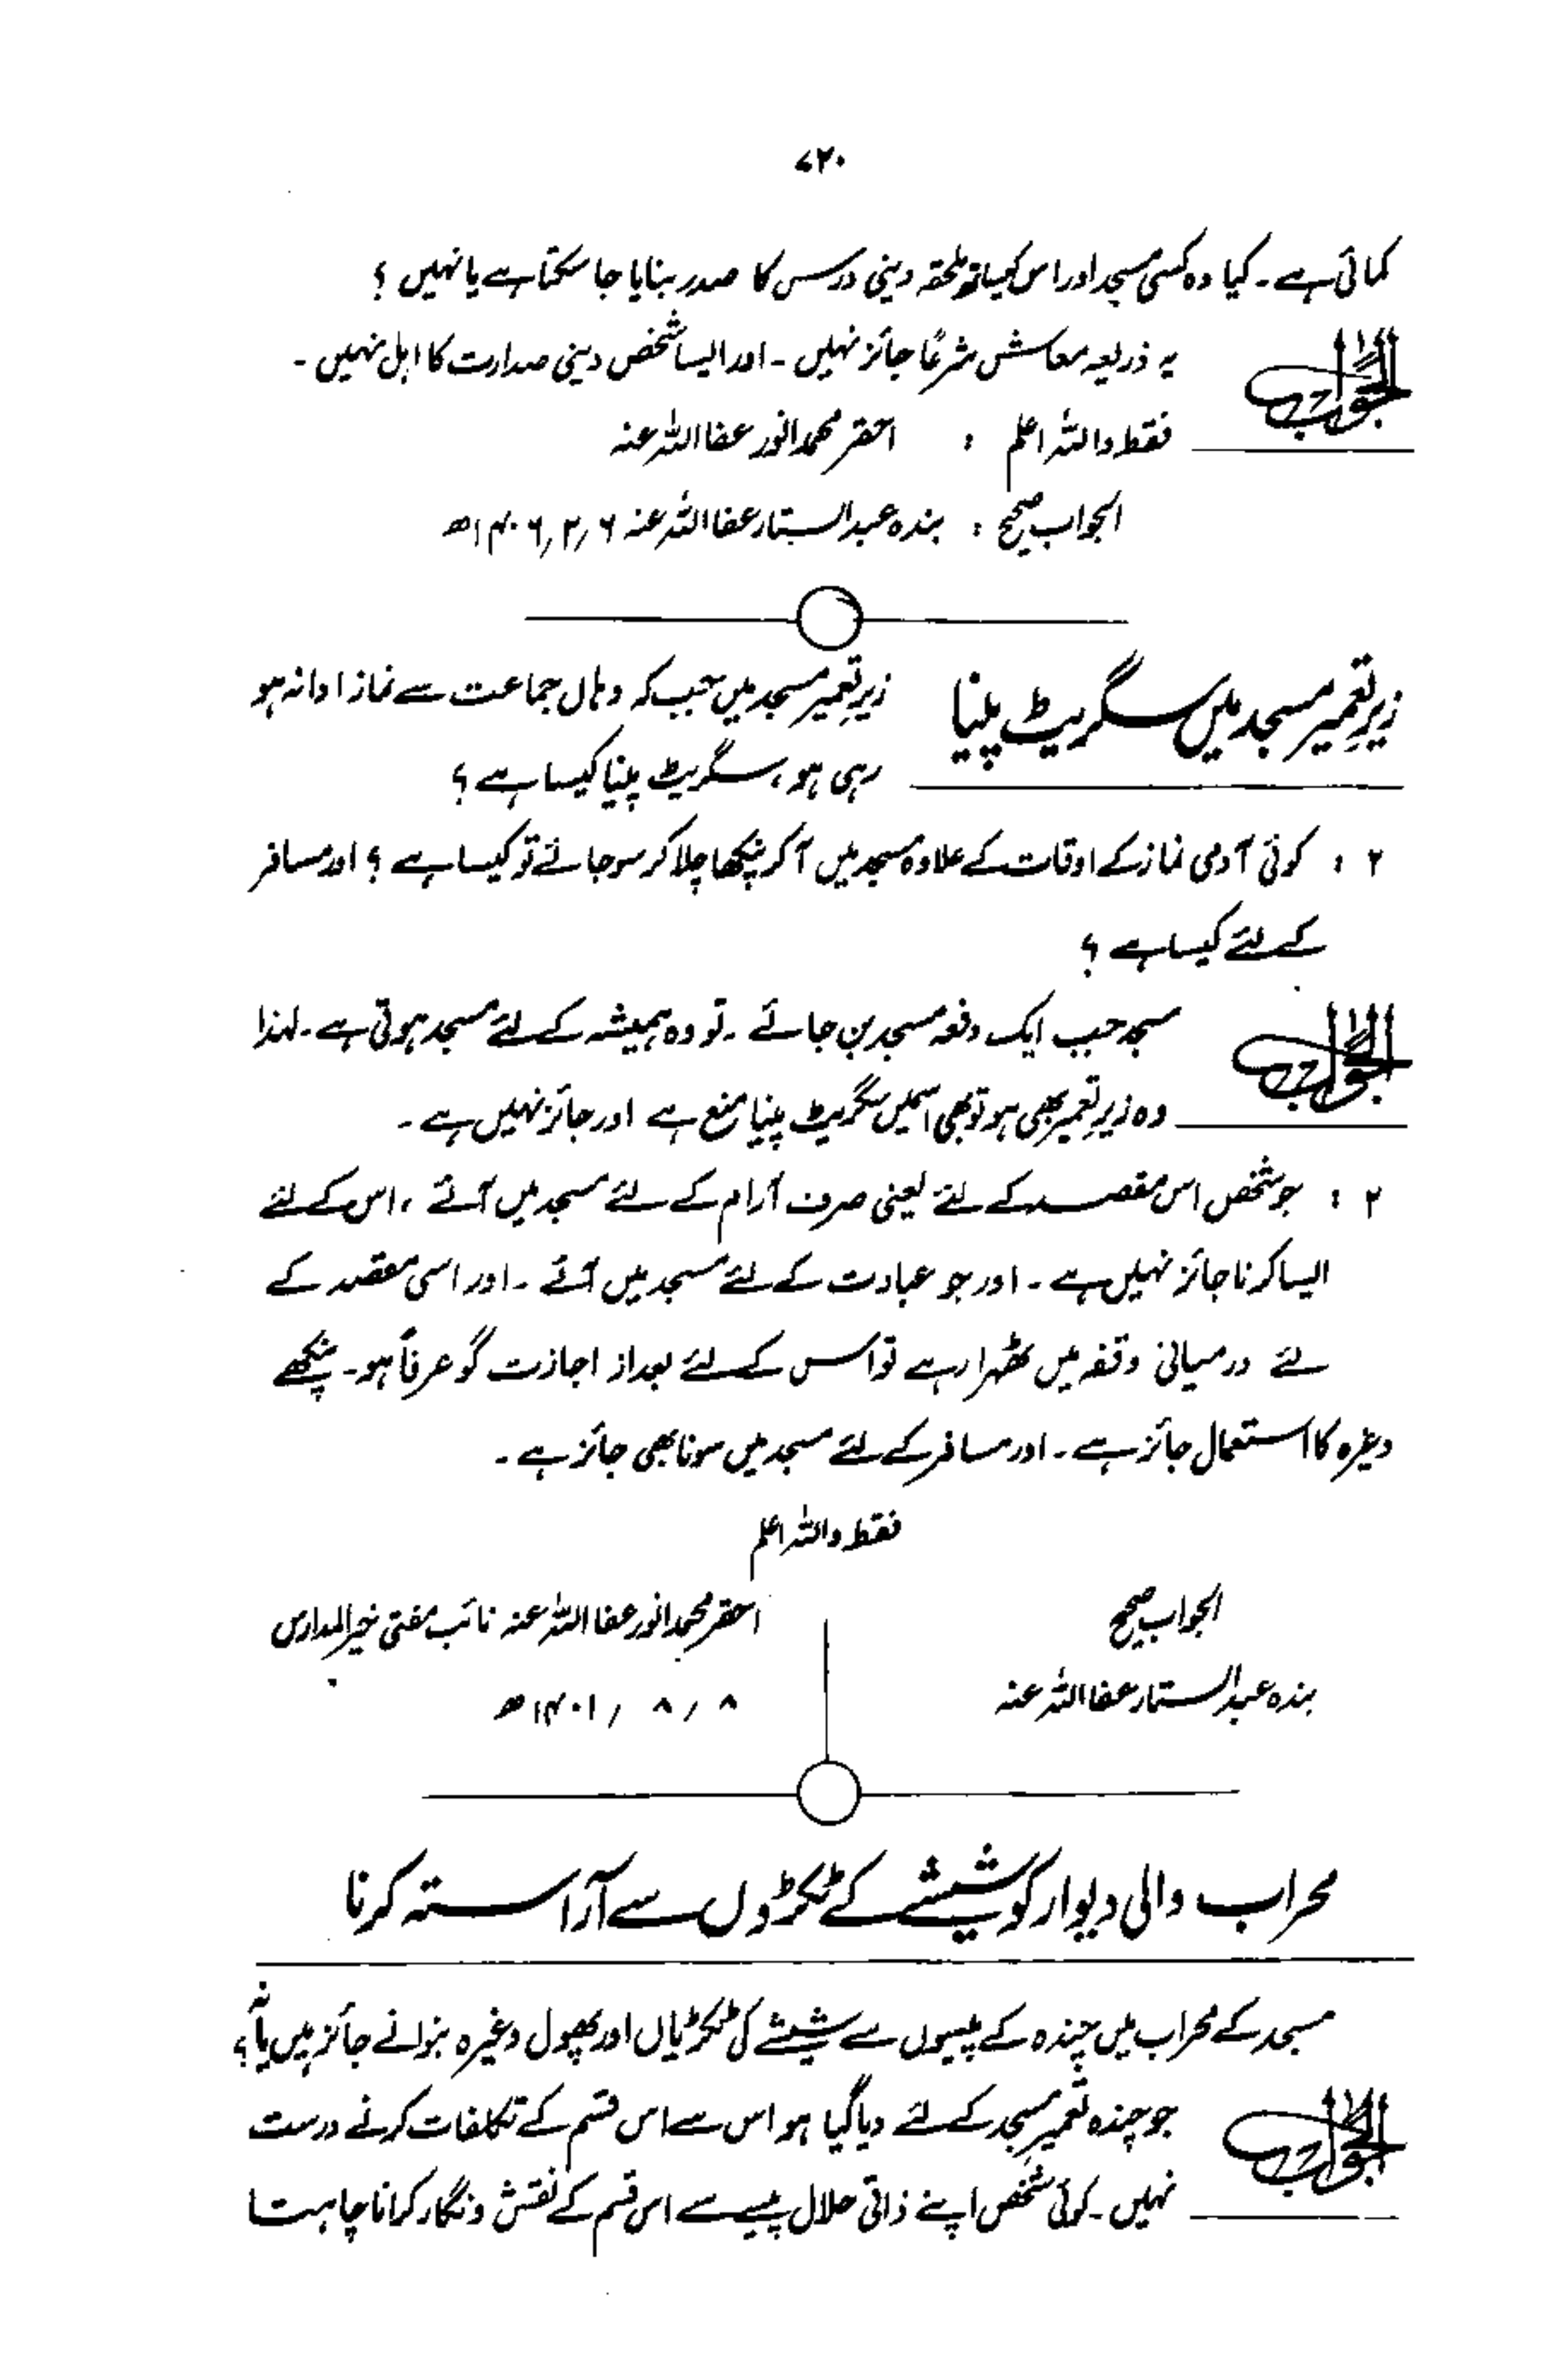 ۷۲۰
کمائی ہے ۔ کیا وہ کسی مسجد اور اس کیساتھ ملحقہ دینی درس کا صدر بنایا جا سکتا ہے یا نہیں ؟
الجواب
یہ ذریعہ معاش شرعًا جائز نہیں ۔ اور ایسا شخص دینی صدارت کا اہل نہیں ۔
فقط واللہ اعلم : احقر محمد انور عفا اللہ عنہ
الجواب صحیح : بندہ عبدالستار عفا اللہ عنہ ۶ ؍ ۲ ؍ ۱۴۰۶ ھ
زیرِ تعمیر مسجد میں سگریٹ پینا
زیرِ تعمیر مسجد میں جب کہ وہاں جماعت سے نماز ادا نہ ہو
رہی ہو ، سگریٹ پینا کیسا ہے ؟
۲ : کوئی آدمی نماز کے اوقات کے علاوہ مسجد میں آ کر پنکھا چلا کر سو جائے تو کیسا ہے ؟ اور مسافر
کے لئے کیسا ہے ؟
الجواب
مسجد جب ایک دفعہ مسجد بن جائے ۔ تو وہ ہمیشہ کے لئے مسجد ہوتی ہے ۔ لہٰذا
وہ زیرِ تعمیر بھی ہو تو بھی اسمیں سگریٹ پینا منع ہے اور جائز نہیں ہے ۔
۲ : جو شخص اس مقصد کے لئے یعنی صرف آرام کے لئے مسجد میں آئے ، اس کے لئے
ایسا کرنا جائز نہیں ہے ۔ اور جو عبادت کے لئے مسجد میں آئے ۔ اور اسی مقصد کے
لئے درمیانی وقفہ میں ٹھہرا رہے تو اس کے لئے بعد از اجازت گو عرفاً ہو ۔ پنکھے
وغیرہ کا استعمال جائز ہے ۔ اور مسافر کے لئے مسجد میں سونا بھی جائز ہے ۔
فقط واللہ اعلم
الجواب صحیح
بندہ عبدالستار عفا اللہ عنہ
احقر محمد انور عفا اللہ عنہ نائب مفتی خیر المدارس
۸ ؍ ۸ ؍ ۱۴۰۱ ھ
محراب والی دیوار کو شیشے کے ٹکڑوں سے آراستہ کرنا
مسجد کے محراب میں چندہ کے پیسوں سے شیشے کی ٹکڑیاں اور پھول وغیرہ بنوانے جائز ہیں یا نہ ؟
الجواب
جو چندہ تعمیرِ مسجد کے لئے دیا گیا ہو اس سے اس قسم کے تکلفات کرنے درست
نہیں ۔ کوئی شخص اپنے ذاتی حلال پیسے سے اس قسم کے نقش و نگار کرانا چاہتا